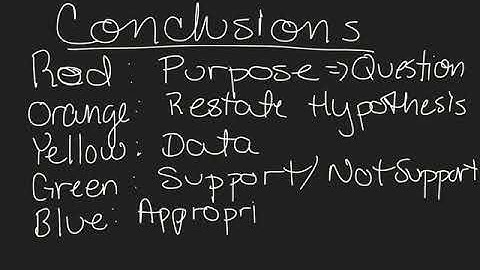 Conclusions
Red: Purpose ⇒ Question
Orange: Restate Hypothesis
Yellow: Data
Green: Support/Not Support
Blue: Appropri